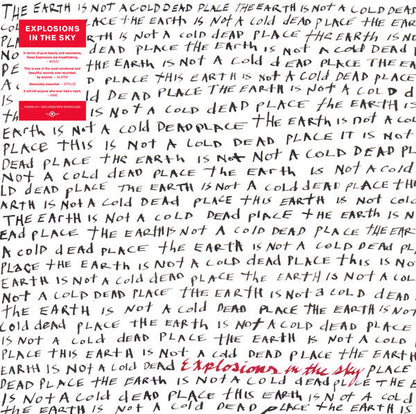 THE EARTH IS NOT A COLD DEAD PLACE THE EARTH IS NOT A COLD DEAD
EXPLOSIONS
IN THE SKY
In terms of pure beauty and resonance,
these Explosions are breathtaking.
beautiful records ever recorded,
by anyone.
NOT A COLD DEAD PLACE THE EARTH IS NOT A COLD
COLD DEAD PLACE THE EARTH IS NOT A
DEAD PLACE THE EARTH IS NOT A COLD DEAD
DEAD PLACE THIS EARTH IS NOT A COLD
EARTH IS NOT A COLD DEAD PLACE THE EARTH IS NOT A COLD DEAD
PLACE THIS IS NOT A COLD DEAD PLACE IT IS NOT
DEAD PLACE THE EARTH IS NOT A COLD DEAD
NOT A COLD DEAD PLACE THE EARTH IS NOT A COLD
LD DEAD PLACE THE EARTH IS NOT A COLD DEAD PLACE THE
ARTH IS NOT A COLD DEAD PLACE THIS EARTH IS NOT COLD
THE EARTH IS NOT A COLD DEAD PLACE THE EARTH IS N
EAD PLACE THE EARTH IS NOT A COLD DEAD PLACE THE EAR
A COLD DEAD PLACE THE EARTH IS NOT A COLD DEAD PL
PLACE THE EARTH IS NOT A COLD DEAD PLACE THIS IS NOT A
EARTH IS NOT A COLD DEAD PLACE THE EARTH IS NOT
NOT A COLD DEAD PLACE THE EARTH IS NOT A COLD DEAD
THE EARTH IS NOT A COLD DEAD PLACE THE EARTH IS NOT
COLD DEAD PLACE THE EARTH IS NOT A COLD DEAD PLACE
IS NOT A COLD DEAD PLACE THE EARTH IS NOT A COLD
PLACE THIS EARTH IS NOT A COLD DEAD PLACE THE EARTH
EARTH IS NOT A COLD DEAD Explosions in the sky PLACE
DEAD PLACE THE EARTH IS NOT A COLD DEAD PLACE THE
THE EARTH IS NOT A COLD DEAD PLACE THE EARTH IS